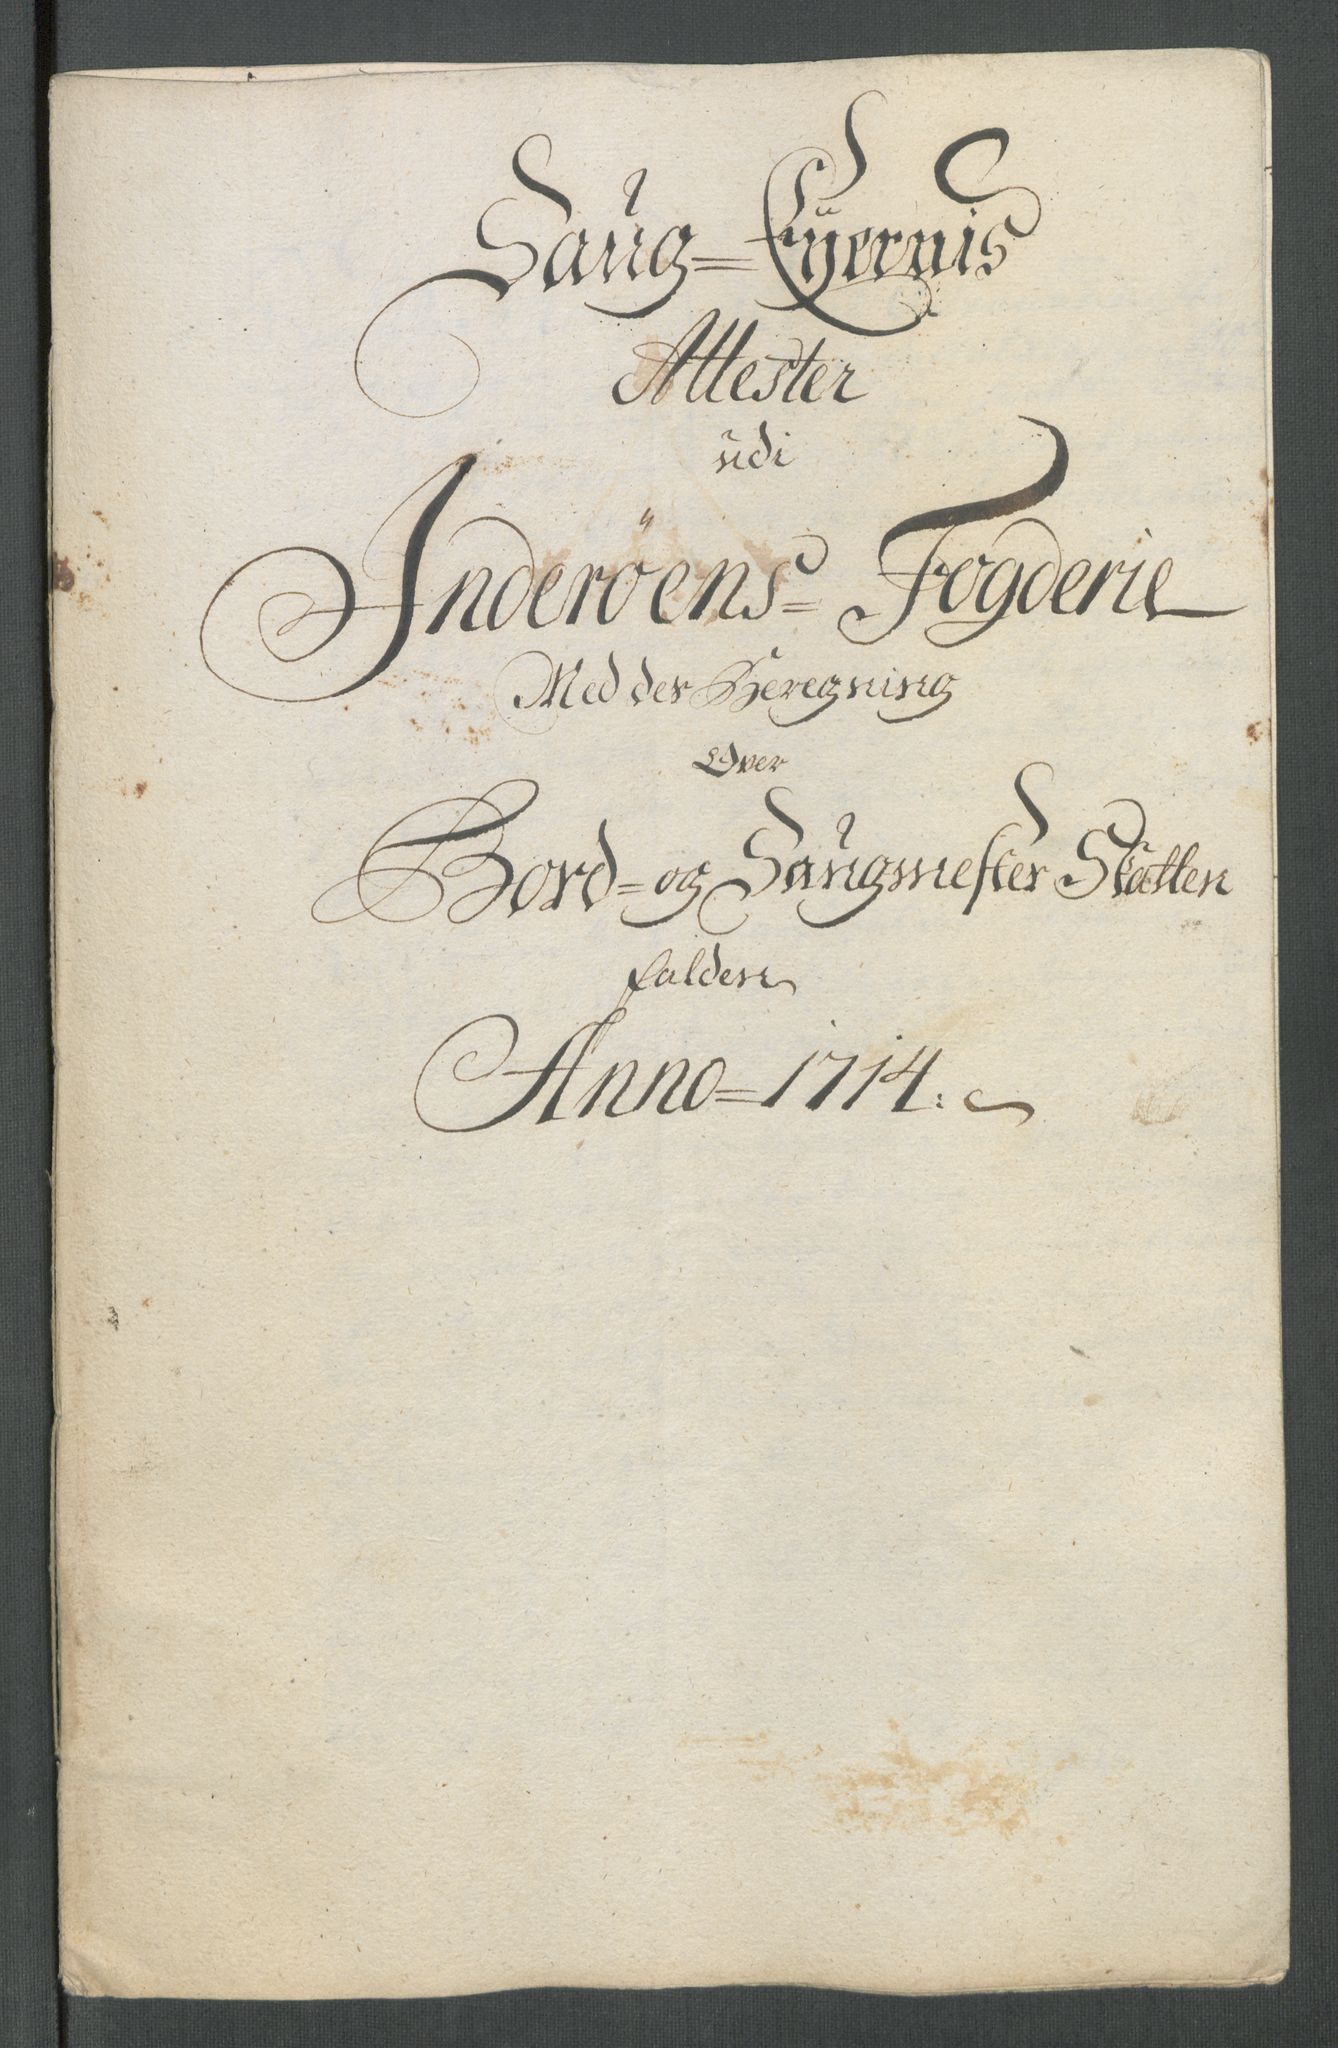 Saug=Eÿernis
Attester
udi
Inderöens= Fogderie
Med der Beregning
Over
Bord= og Saugmester Skatten
falden
Anno=1714.